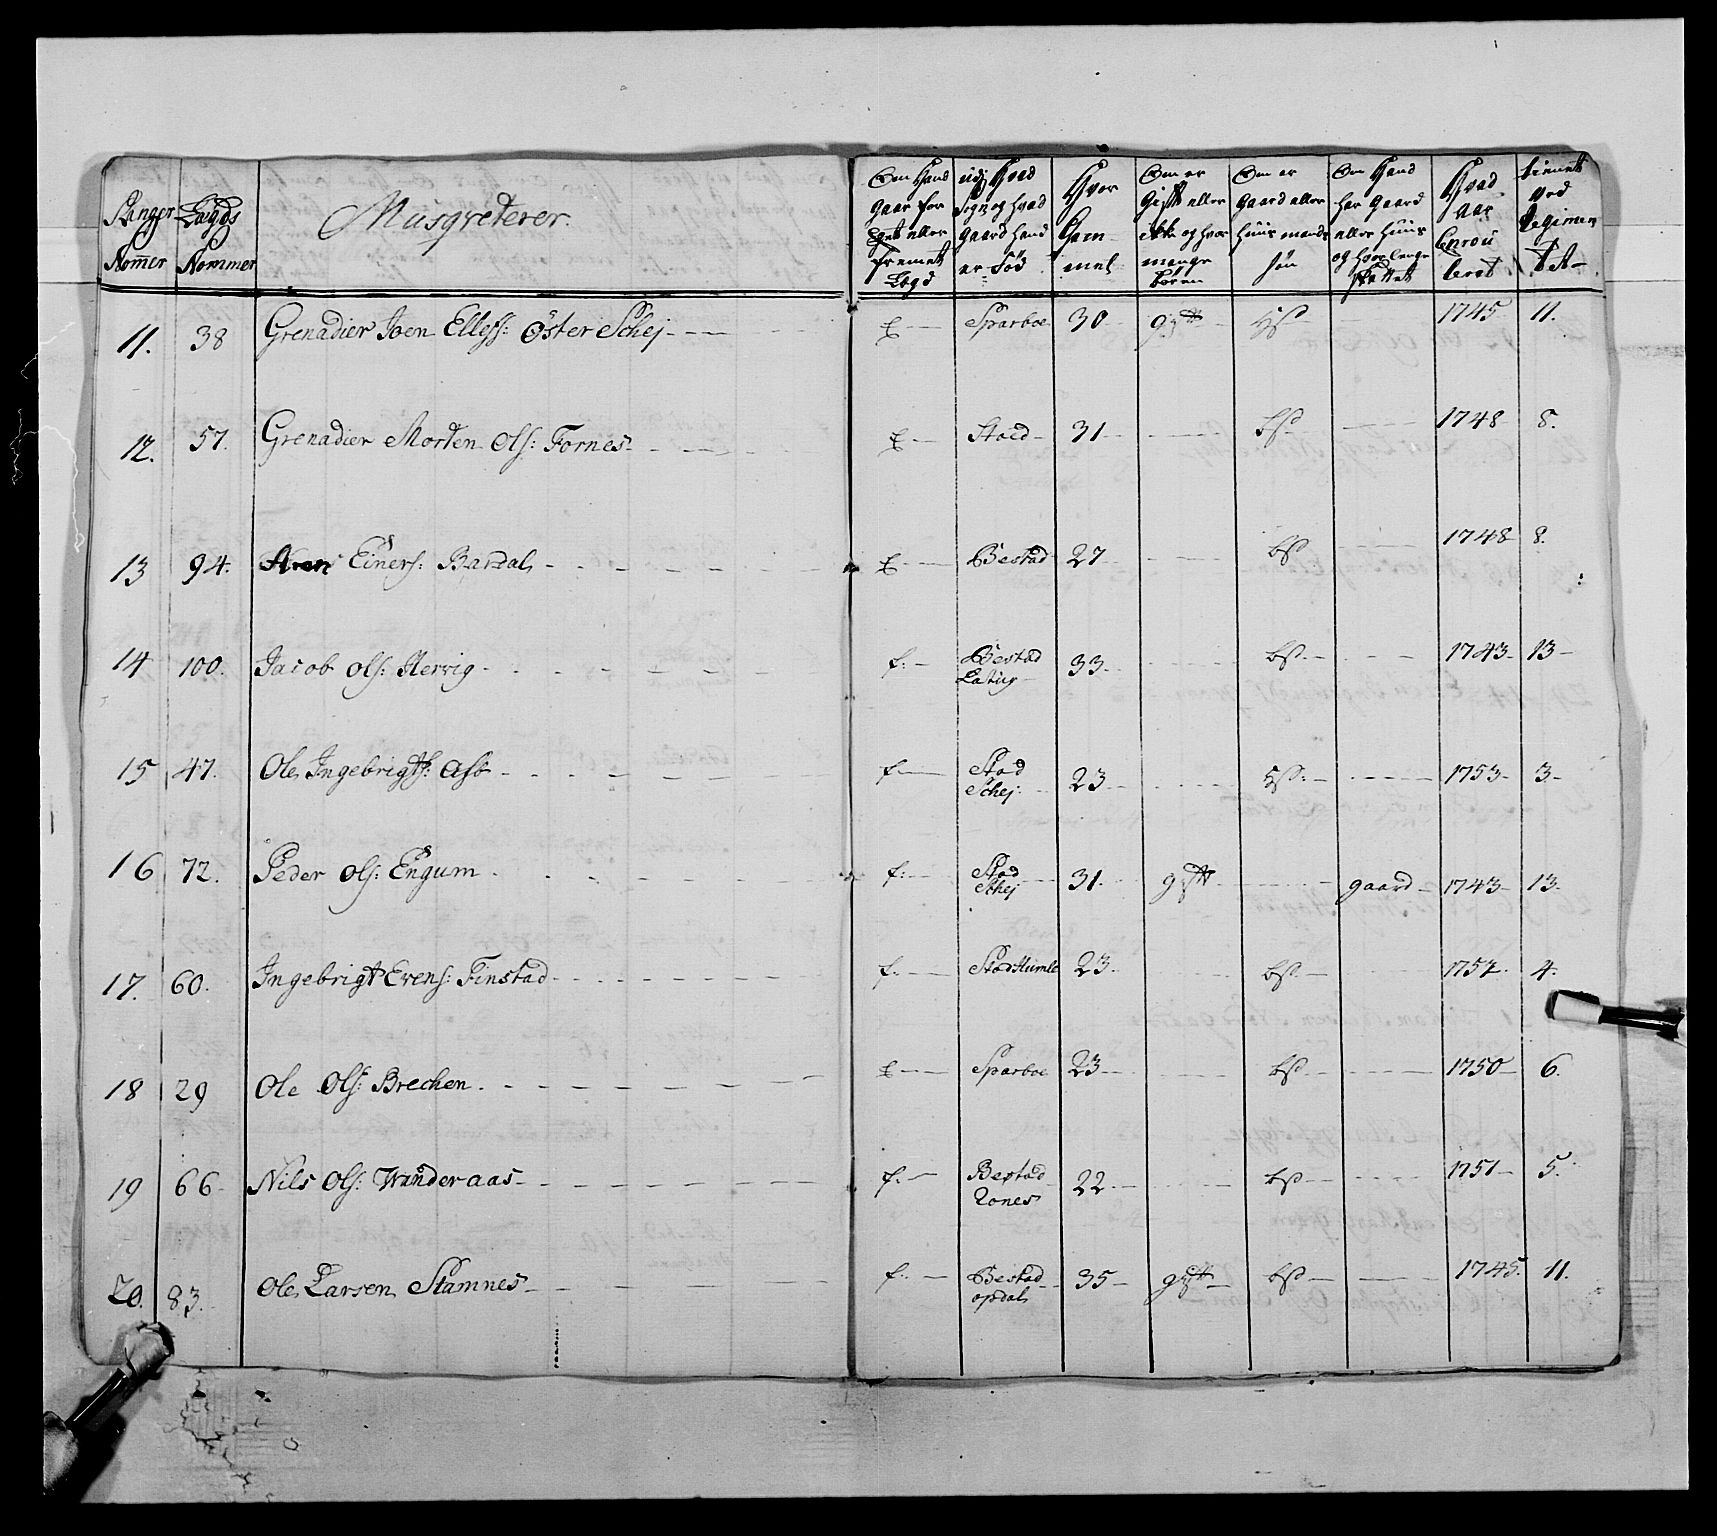 Ranger Nom̄er
Laigds Nommer
Musqveterer.
Om Hand gaar for Eget eller fremett Legd
udj Hvad Sogn og hvad gaard hand er Fød
Hvor Gam- mel
Om er Gift eller ikke og hvor mange börn
Om er gaard eller huus mands sön
Om Hand har gaard eller huus og hvor lenge
Hvad aar Enrou leret
tienett ved Regimen tet
11. 38 Grenadier Joen Ellefs: Öster Schej E Sparboe 30 gift HS 1745 11.
12. 57. Grenadier Morten Ols: Fornes E Stoed 31 bS 1748 8.
13 94. Einers: Bardal E Bestad 27 bS 1748 8.
14 100. Jacob Ols: Hervig f: Bestad 33 bS 1743 13
15 47. Ole Ingebrigts: Asb f Stod Schej 23 HS: 1753 3
16 72. Peder Ols: Engum f: Stod Schej 31. gift gaard 1743 13
17. 60. Ingebrigt Evens: Finstad f. Stod Humle 23 bS 1752. 4.
18 29 Ole Ols: Brechen E Sparboe 23 bS 1750 6.
19 66 Nils Ols: Wanderaas f. Bestad 22 bS 1751 5.
20. 83. Ole Larsen Stamnes f. Bestad opdal 35 gift bS 1745. 11.